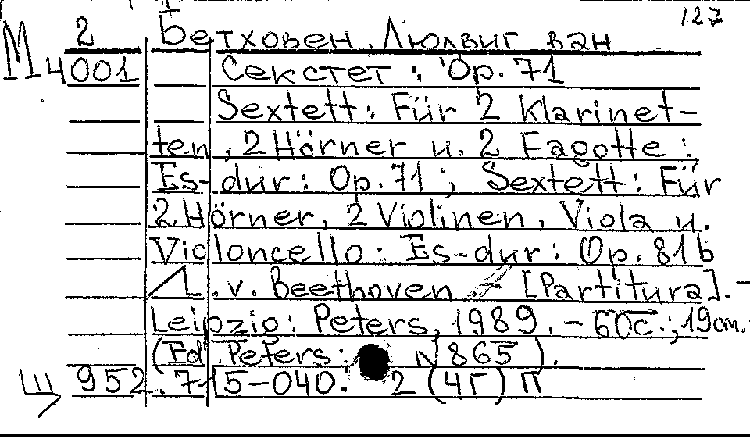 127
2 Бетховен, Людвиг ван
М4001 Секстет: Op. 71
Sextett: Für 2 Klarinet-
ten, 2 Hörner u. 2 Fagotte:
Es-dur: Op. 71; Sextett: Für
2 Hörner, 2 Violinen, Viola u.
Violoncello: Es-dur: Op. 81b
/L. v. Beethoven. - [Partitura]. -
Leipzig: Peters, 1989. - 60 с.; 19 cm. -
(Ed Peters; N 865).
Ш 952.7-15-040. 2 (4Г) П